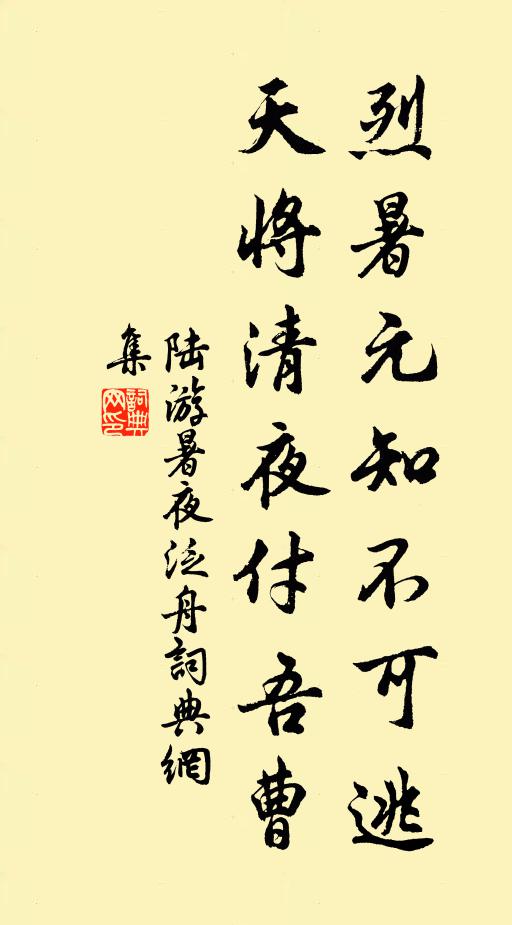 烈暑元知不可逃
天將清夜付吾曹
陆游暑夜泛舟詞典網
集
詞典
网印